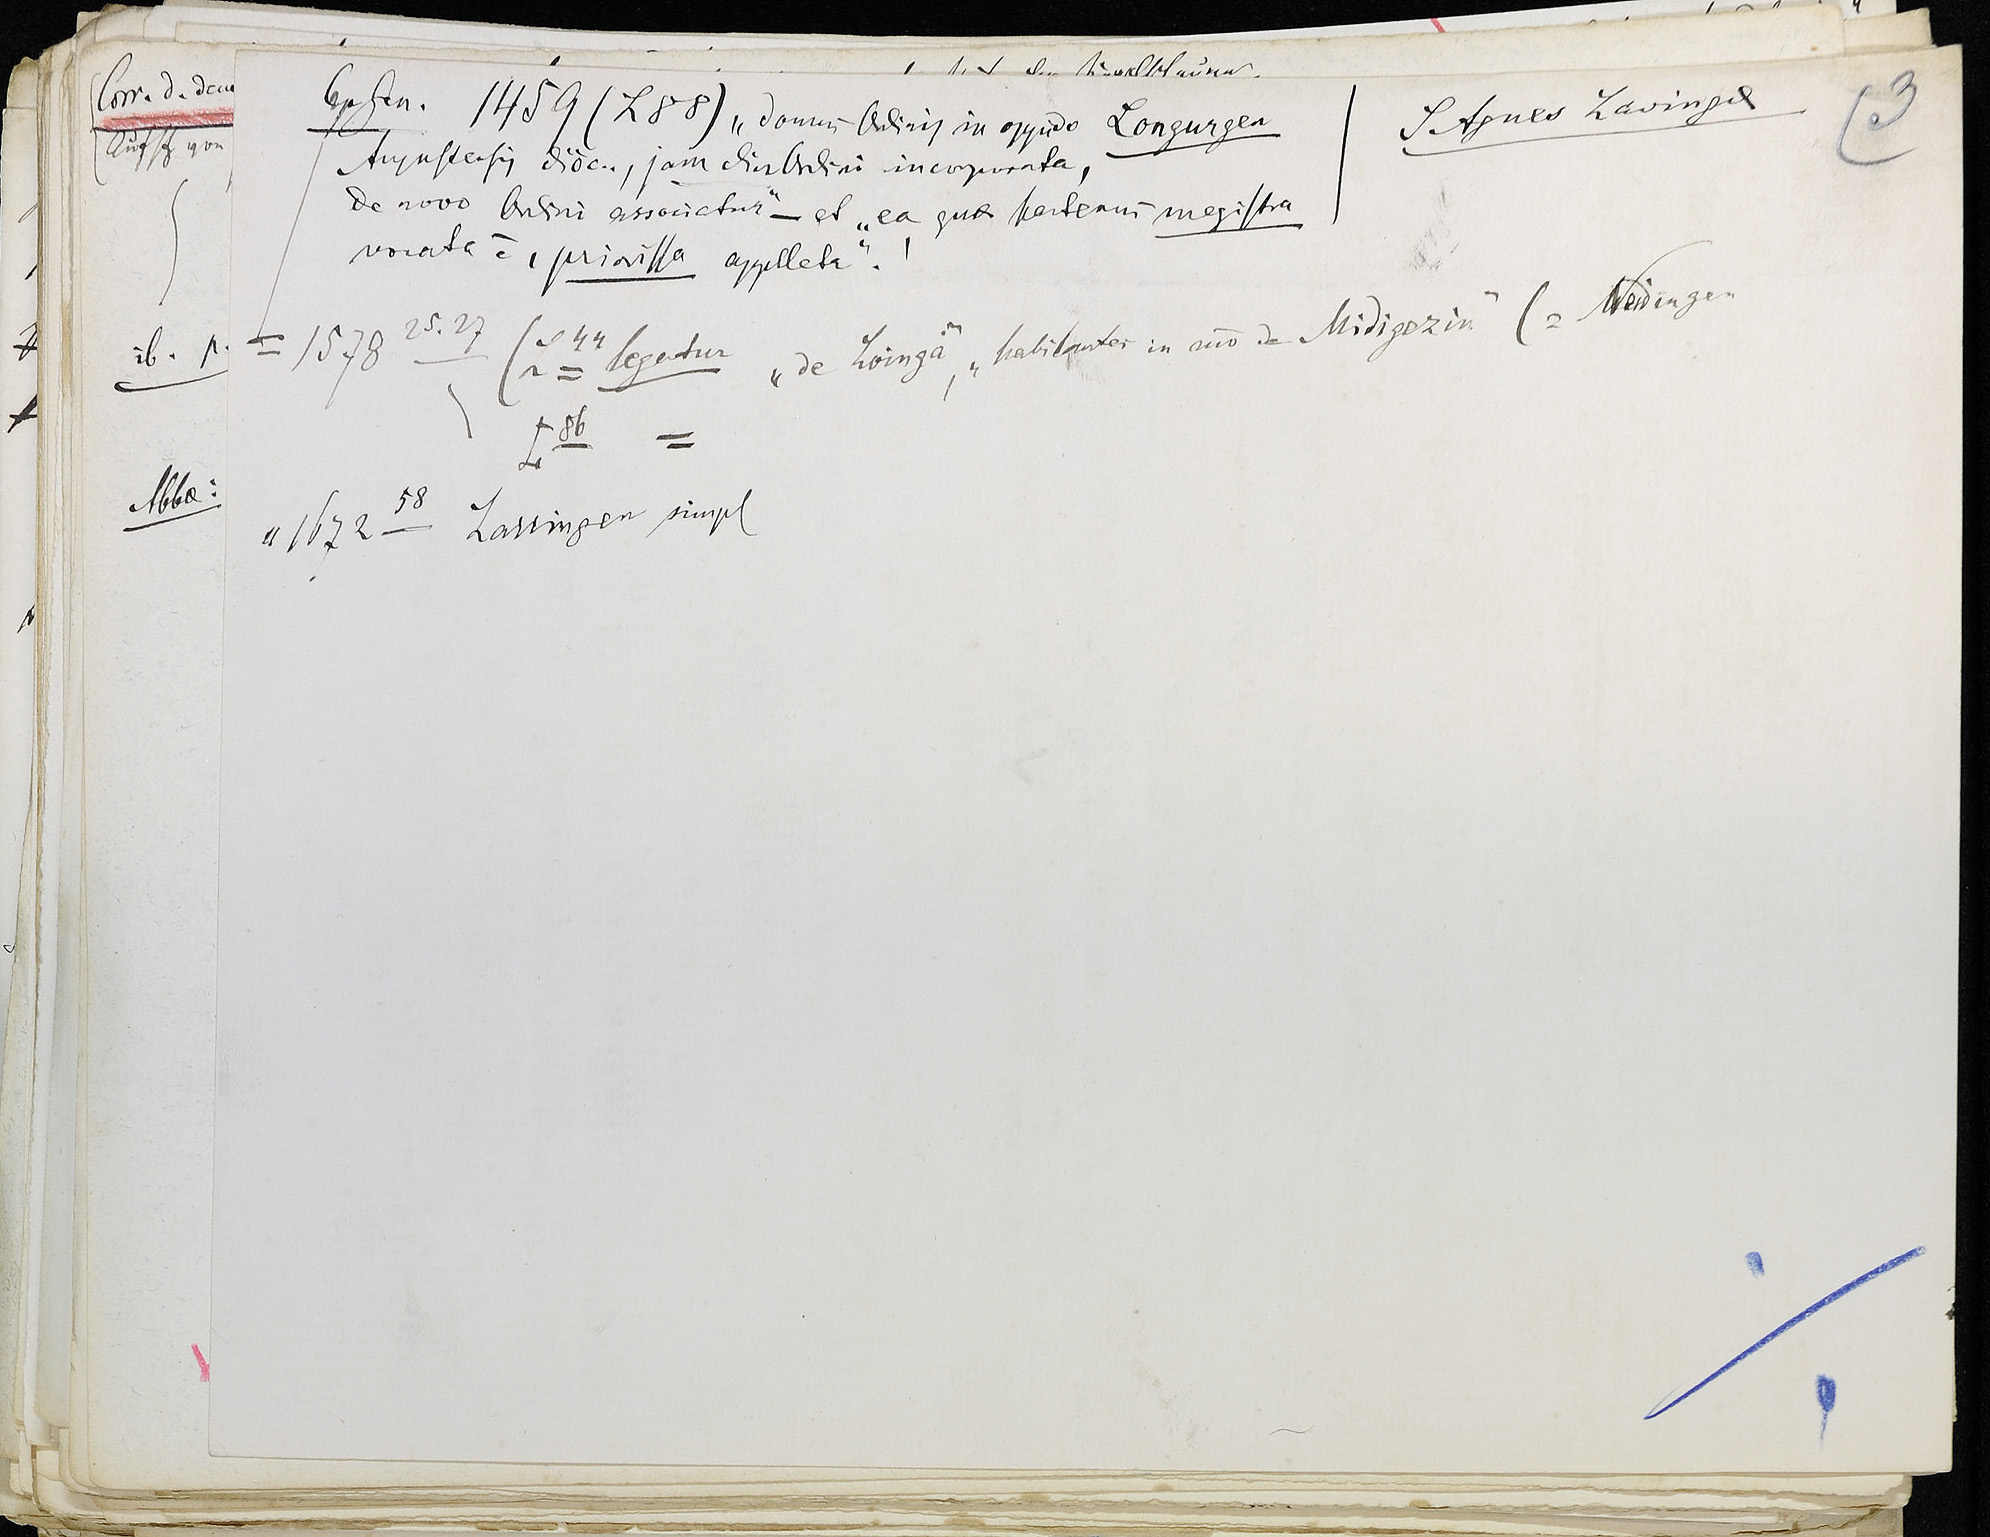 Cap. Gen. 1459 (L 88) „domus Ordinis in oppido Longurgen
Augustensis dioec., jam diu Ordini incorporata,
de novo Ordini associatur“ — et „ea que hactenus magistra
vocata ē, priorissa appelleta“. !
S Agnes Lavingae
3
Corr. d. dem
Aufsz von
ib. p.
= 1578 25.27 ( legatur „de Loingā“, „habitantes in mō de Midigezin“ ( = Medingen
L 86 =
Abbae:
" 1672 58 Lassingen simpl